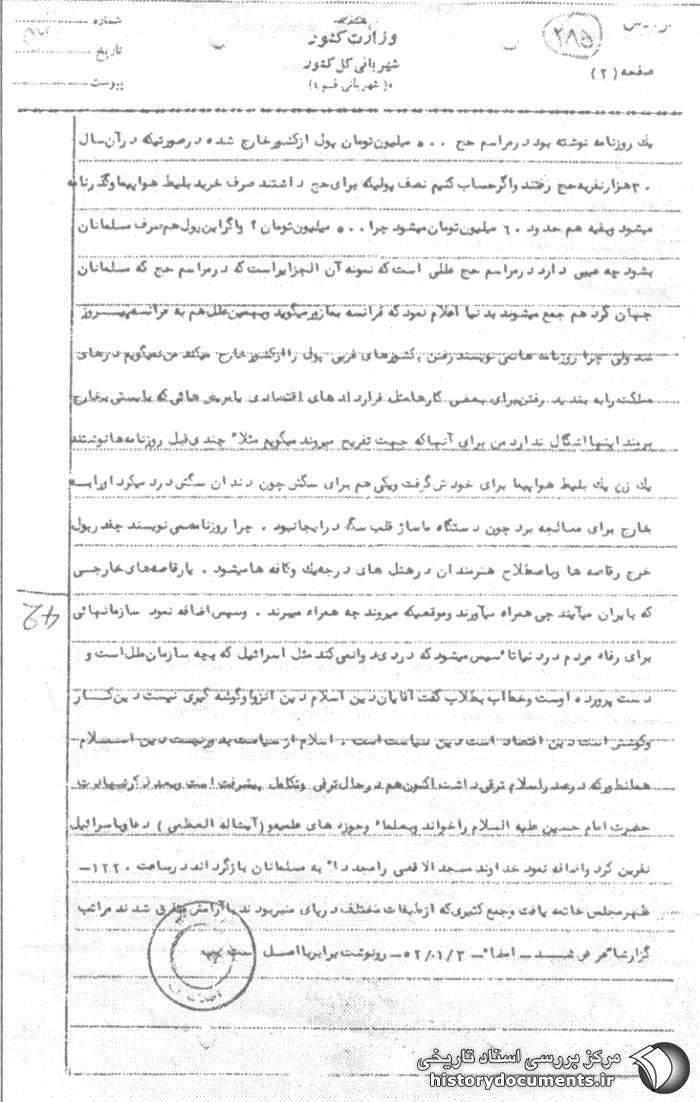 وزارت کشور
شهربانی کل کشور
(شهربانی قم)
شماره
تاریخ
پیوست
۲۸۵
صفحه (۲)
یك روزنامه نوشته بود در مراسم حج ۵۰۰ میلیون تومان پول از کشور خارج شده در صورتیکه در آن سال
۳۰ هزار نفر به حج رفتند واگر حساب کنیم نصف پولیکه برای حج داشتند صرف خرید بلیط هواپیما وگذرنامه
میشود وبقیه هم حدود ۶۰ میلیون تومان میشود چرا ۵۰۰ میلیون تومان ؟ واگر این پول هم صرف مسلمانان
بشود چه عیبی دارد در مراسم حج مللی است که نمونه آن الجزایر است که در مراسم حج که مسلمانان
جهان گرد هم جمع میشوند بدنیا اعلام نمود که فرانسه بما زور میگوید وبهمین علل هم به فرانسه پیـــروز
شد ولی چرا روزنامه هانمی نویسند رفتن بکشورهای غربی پول را از کشور خارج میکند من نمیگویم درهای
مملکت را به بندید رفتن برای بعضی کارها مثل قراردادهای اقتصادی یا مریض هائی که بایستی بخارج
بروند اینها اشگال ندارد من برای آنهاکه جهت تفریح میروند میگویم مثلا" چندی قبل روزنامه ها نوشتند
یك زن یك بلیط هواپیما برای خودش گرفت ویکی هم برای سگش چون دندان سگش درد میکرد اورا بـــه
خارج برای معالجه برد چون دستگاه ماساژ قلب سگ در اینجا نبود . چرا روزنامه نمی نویسند چقدر پول
خرج رقاصه ها وباصطلاح هنرمندان در هتل های درجه یك وکافه ها میشود . یا رقاصه های خارجـــی
که بایران میآیند چی همراه میآورند وموقعیکه میروند چه همراه میبرند . وسپس اضافه نمود سازمانهائی
42
برای رفاه مردم در دنیا تا"سیس میشود که دردی دوا نمی کند مثل اسرائیل که بچه سازمان ملل است و
دست پرورده اوست وخطاب بطلاب گفت آقایان دین اسلام دین انزوا وگوشه گیری نیست دین کـــار
وکوشش است دین اقتصاد است دین سیاست است . اسلام از سیاست بدور نیست دین اســـلام
همانطورکه در صدر اسلام ترقی داشت اکنون هم در حال ترقی وتکامل پیشرفت است وبعد ذکر شهادت
حضرت امام حسین علیه السلام را خواند وبعلما" وحوزه های علمیه و (آیت اله العظمی ) دعا وباسرائیل
نفرین کرد واضافه نمود خداوند مسجد الاقصی را مجددا" به مسلمانان بازگرداند در ساعت ۱۲۲۰ –
ظهر مجلس خاتمه یافت وجمع کثیری که از طبقات مختلف در پای منبر بودند با آرامش متفرق شدند مراتب
گزارشا" عرض شـــد – امضا" – ۵۲/۰۱/۳ – رونوشت برابر با اصل است
مرکز بررسی اسناد تاریخی
historydocuments.ir